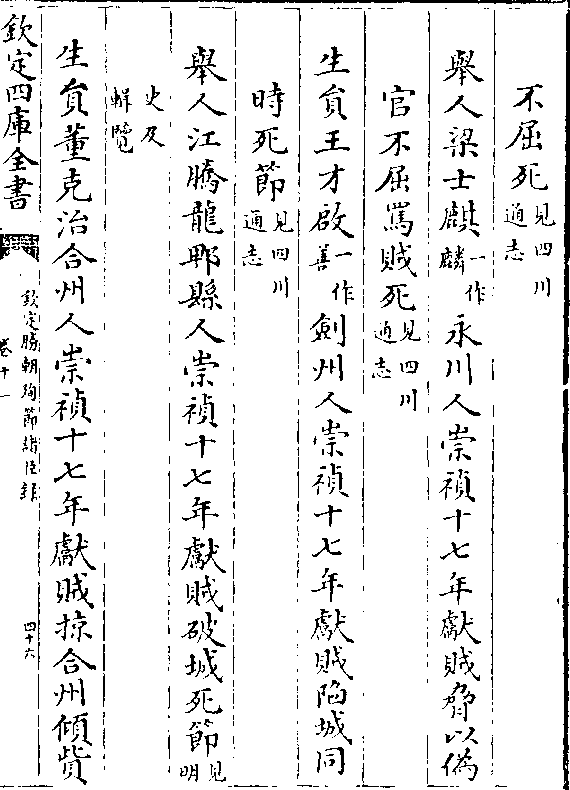 不屈死見四川通志
舉人梁士麒一作麟永川人崇禎十七年獻賊脅以偽
官不屈罵賊死見四川通志
生員王才啟一作善劍州人崇禎十七年獻賊陷城同
時死節見四川通志
舉人江騰龍郫縣人崇禎十七年獻賊破城死節見明
史及輯覽
生員董克治合州人崇禎十七年獻賊掠合州傾貲
欽定四庫全書
欽定勝朝殉節諸臣錄
卷十一
四十六